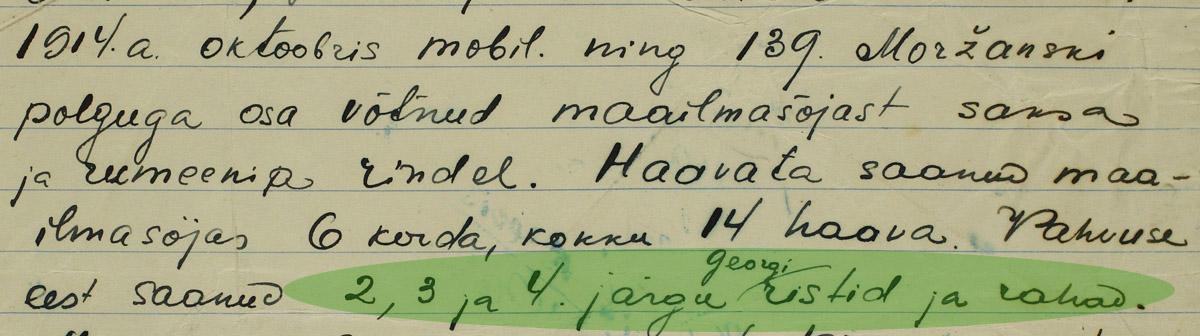 1914.a. oktoobris mobil. ning 139. Moržanski
polguga osa võtnud maailmasõjast saksa
ja rumeenia rindel. Haavata saanud maa-
ilmasõjas 6 korda, kokku 14 haava. Vahvuse
eest saanud 2, 3 ja 4. järgu georgi ristid ja rahad.